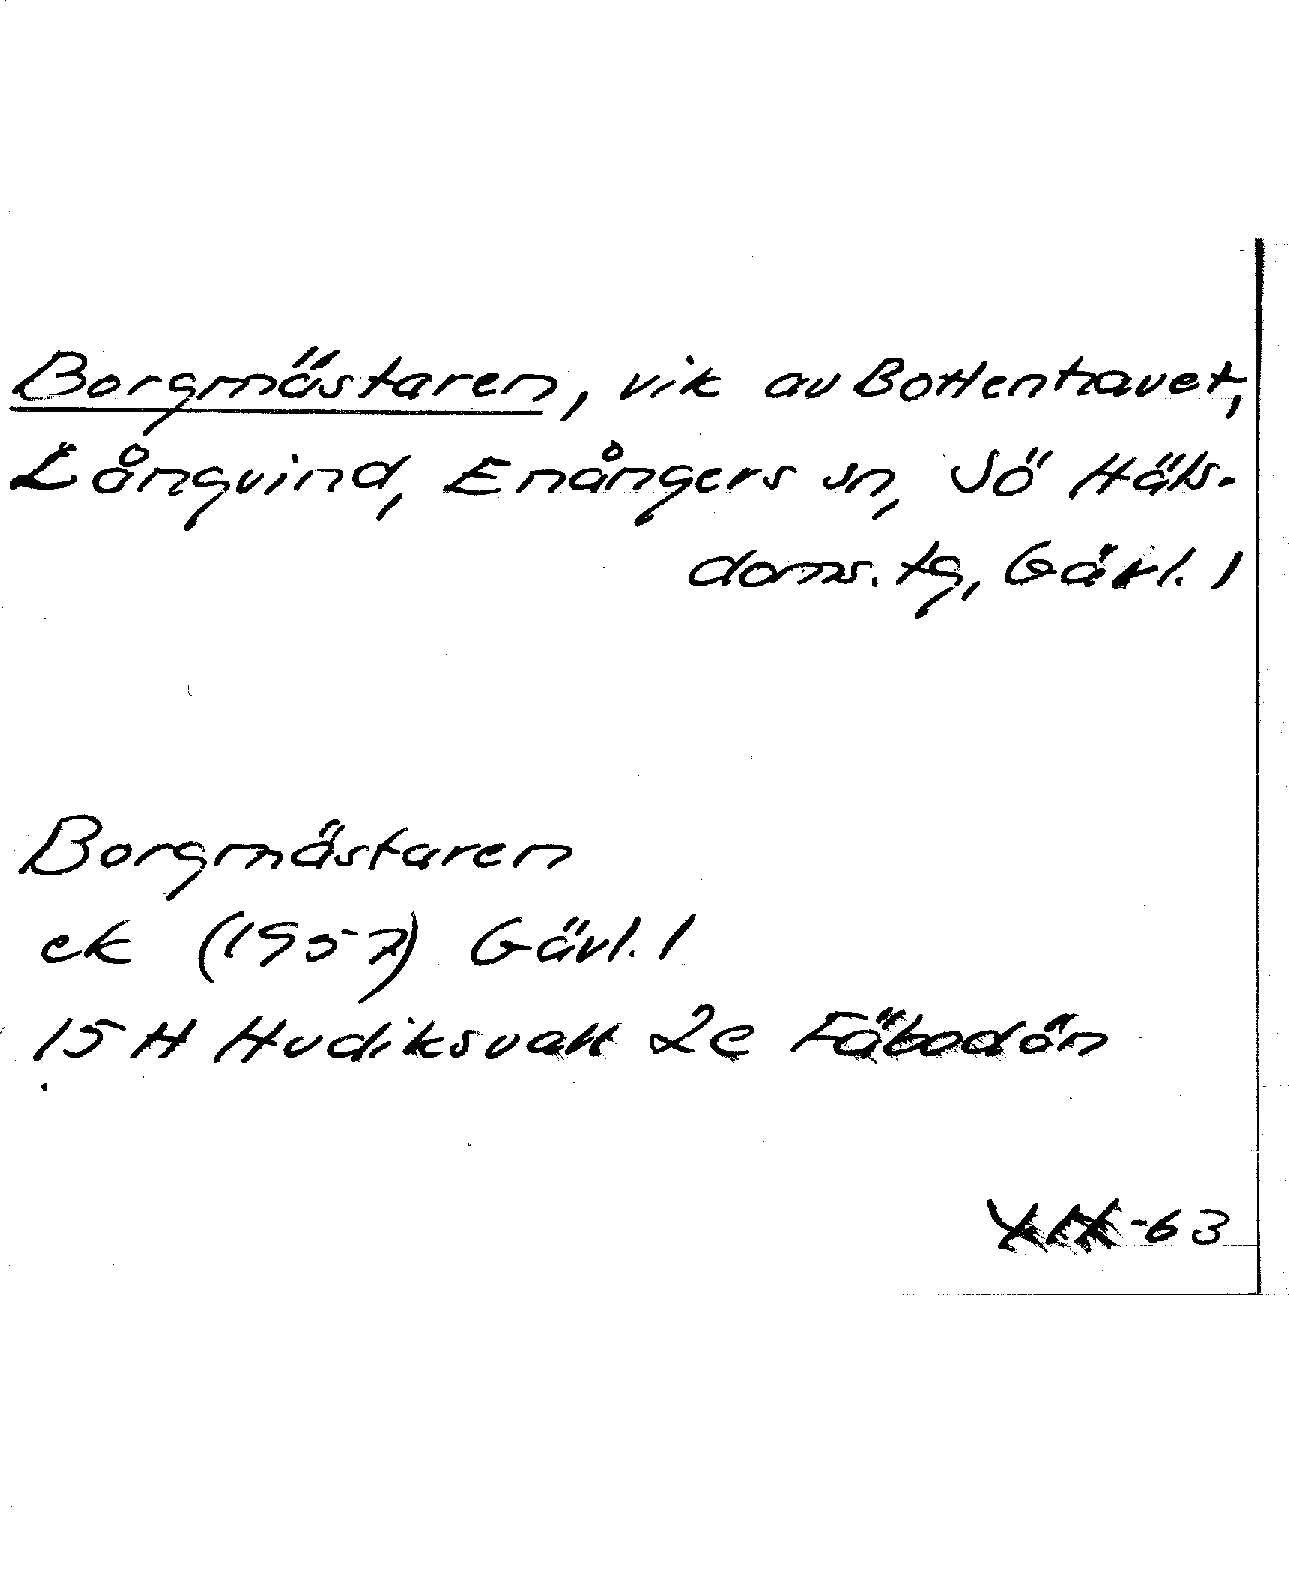 Borgmästaren, vik av Bottenhavet,
Långvind, Enångers sn, Sö Häls.
doms. tg, Gävl. l
Borgmästaren
ek (1957) Gävl. l
15 H Hudiksvall 2c Fäbodön
XIX-63